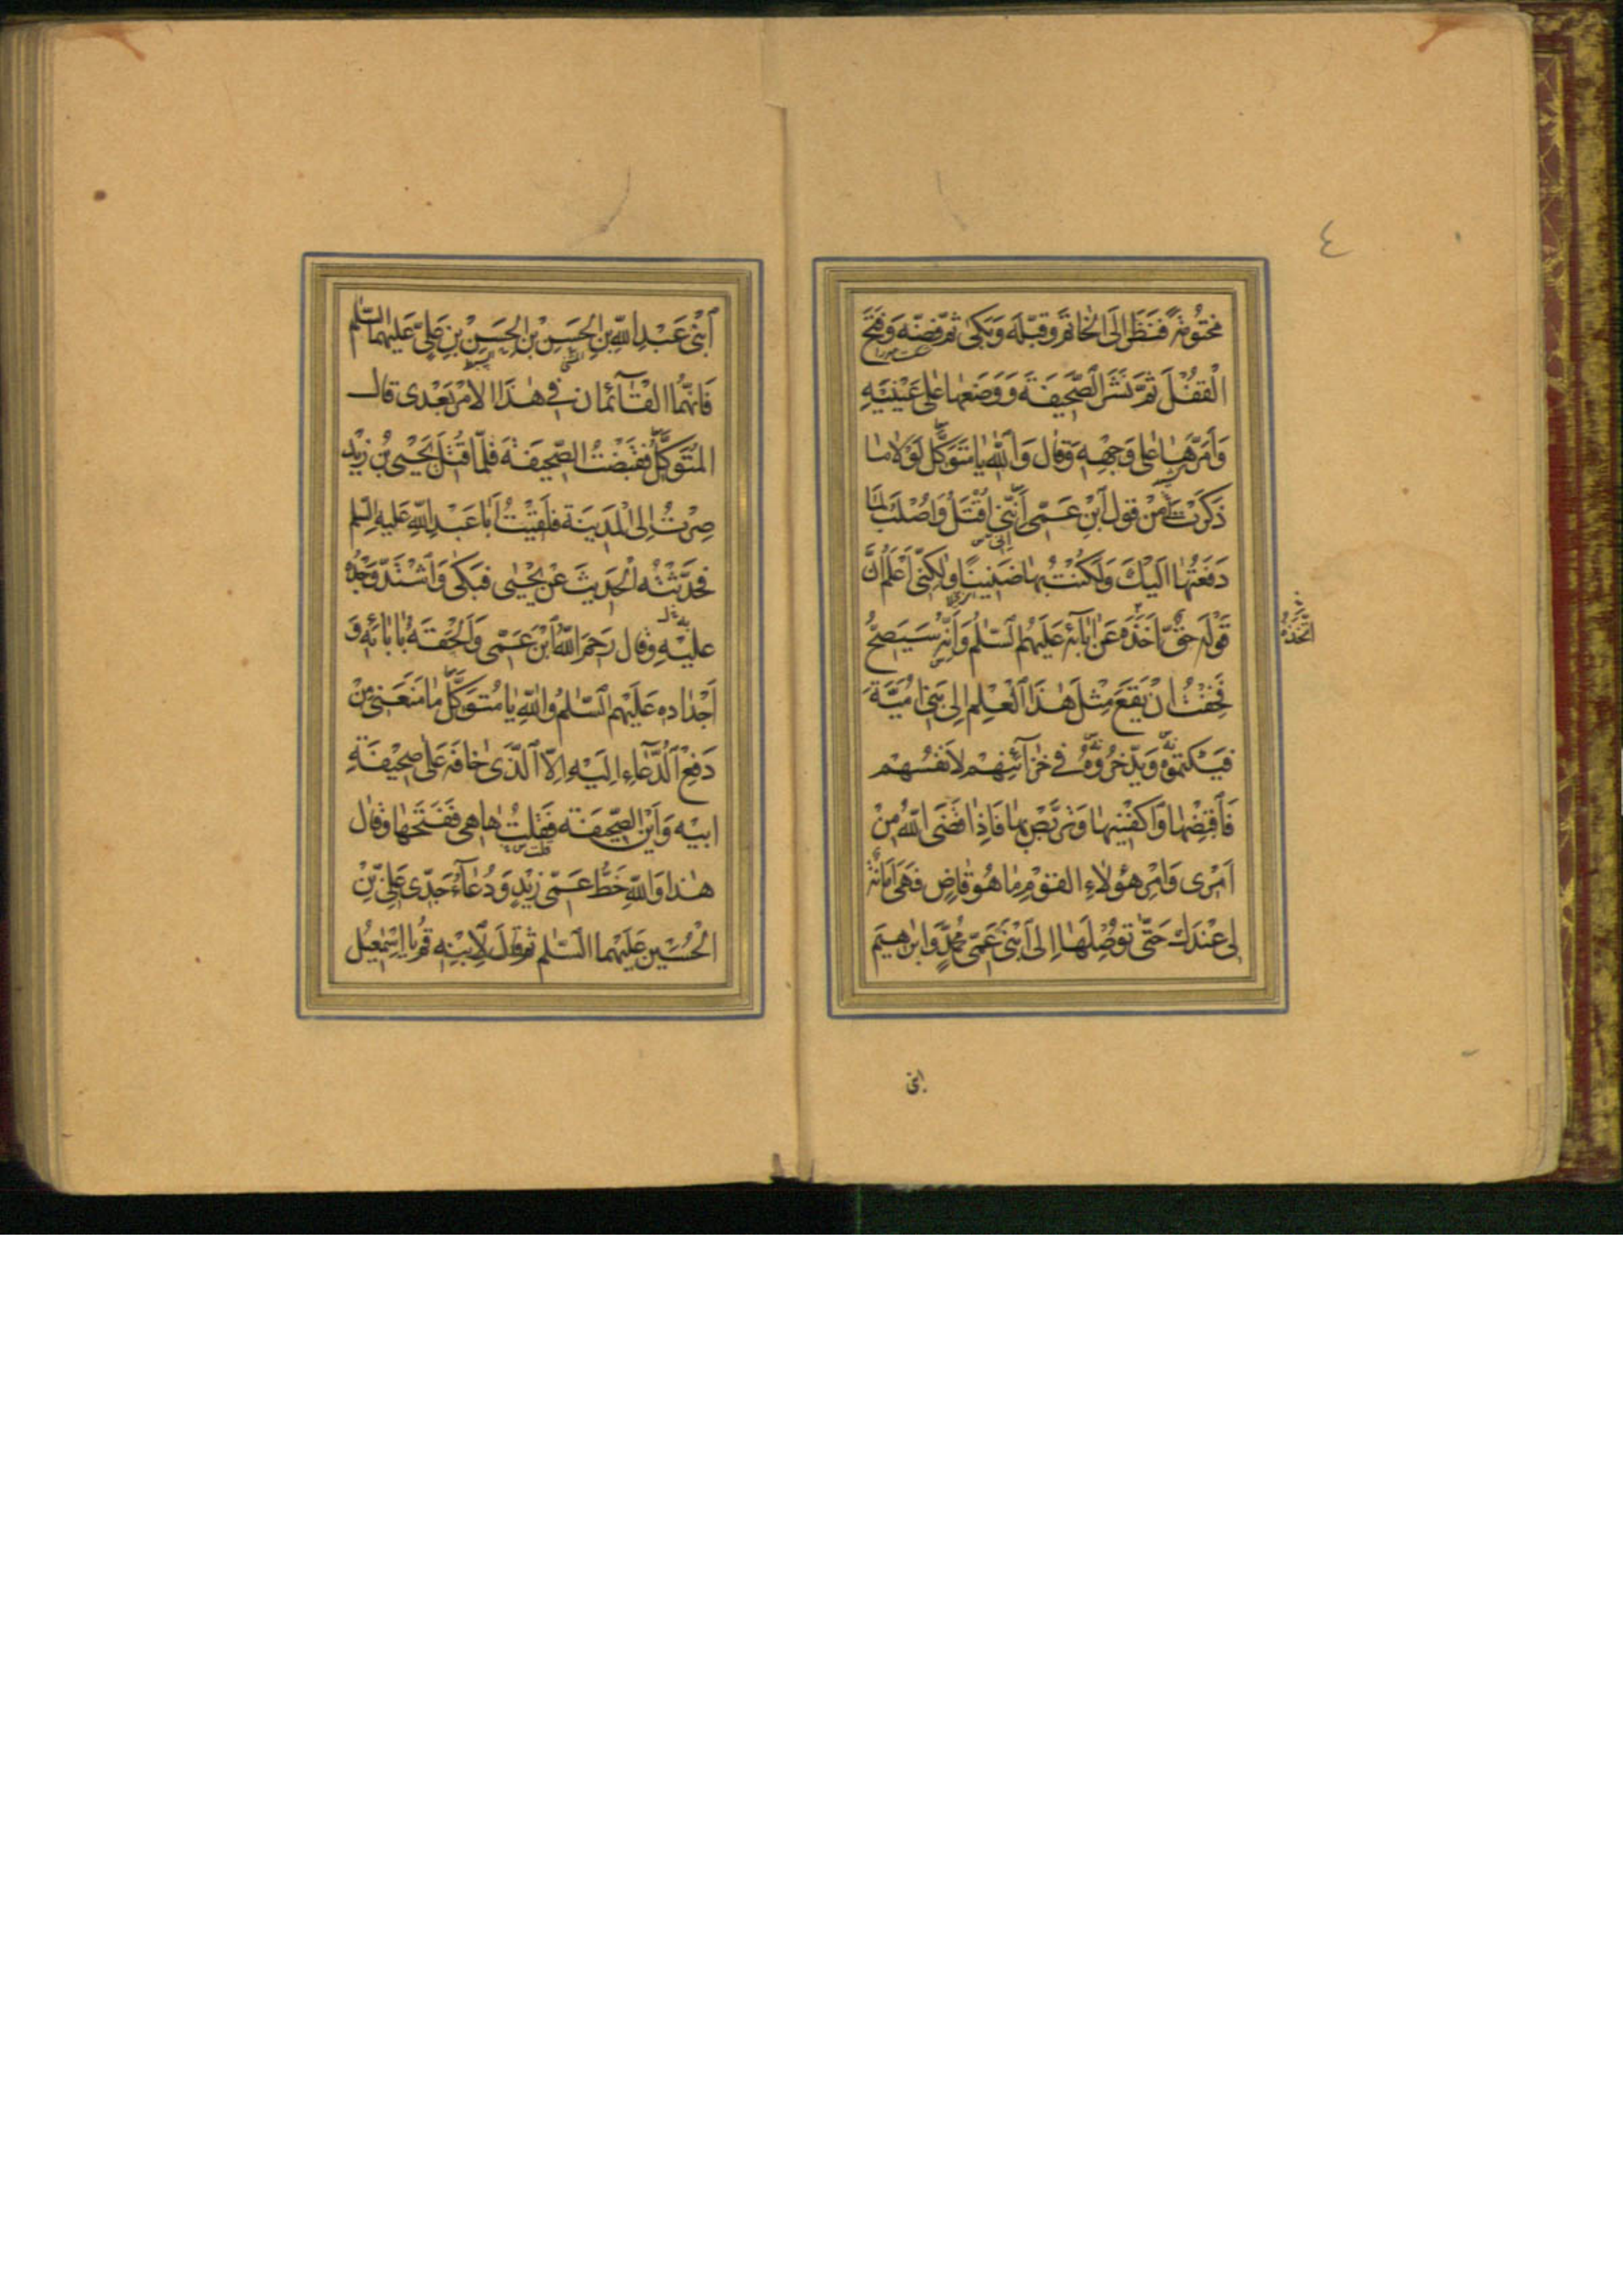 ٤
مَخْتُومَةً فَنَظَرَ اِلَى الْخَاتَمِ وَقَبَّلَهُ وَبَكىٰ ثُمَّ فَضَّهُ وَفَتَحَ
الْقُفْلَ ثُمَّ نَشَرَ الصَّحِيفَةَ وَوَضَعَهَا عَلىٰ عَيْنَيْهِ
وَاَمَرَّهَا عَلىٰ وَجْهِهِ وَقَالَ وَاللّٰهِ يَا مُتَوَكِّلُ لَوْلَا مَا
ذَكَرْتَ مِنْ قَوْلِ ابْنِ عَمّى اَنَّنِى اُقْتَلُ وَاُصْلَبُ لَمَا
دَفَعْتُهَا اِلَيْكَ وَلَكُنْتُ بِهَا ضَنِينًا وَلٰكِنّى اَعْلَمُ اَنَّ
قَوْلَهُ حَقٌّ اَخَذَهُ عَنْ اٰبَائِهِ عَلَيْهِمُ السَّلٰمُ وَاَنَّهُ سَيَصِحُّ
فَخِفْتُ اَنْ يَقَعَ مِثْلُ هٰذَا الْعِلْمِ اِلىٰ بَنِى اُمَيَّةَ
فَيَكْتُمُوهُ وَيَدَّخِرُوهُ فِى خَزَآئِنِهِمْ لِاَنْفُسِهِمْ
فَاقْبِضْهَا وَاكْفِنِيهَا وَتَرَبَّصْ بِهَا فَاِذَا قَضَى اللّٰهُ مِنْ
اَمْرِى وَاَمْرِ هٰؤُلَاءِ الْقَوْمِ مَا هُوَ قَاضٍ فَهِىَ اَمَانَةٌ
لِى عِنْدَكَ حَتّىٰ تُوصِلَهَا اِلَى ابْنَىْ عَمّى مُحَمَّدٍ وَاِبْرٰهِيمَ
ابنى
ابْنَىْ عَبْدِ اللّٰهِ بْنِ الْحَسَنِ بْنِ الْحَسَنِ بْنِ عَلِىٍّ عَلَيْهِمَا السَّلٰم
فَاِنَّهُمَا الْقَآئِمَانِ فِى هٰذَا الْاَمْرِ بَعْدِى قَالَ
الْمُتَوَكِّلُ فَقَبَضْتُ الصَّحِيفَةَ فَلَمَّا قُتِلَ يَحْيَى بْنُ زَيْدٍ
صِرْتُ اِلَى الْمَدِينَةِ فَلَقِيتُ اَبَا عَبْدِ اللّٰهِ عَلَيْهِ السَّلٰم
فَحَدَّثْتُهُ الْحَدِيثَ عَنْ يَحْيىٰ فَبَكىٰ وَاشْتَدَّ وَجْدُهُ
عَلَيْهِ وَقَالَ رَحِمَ اللّٰهُ ابْنَ عَمّى وَاَلْحَقَهُ بِاٰبَائِهِ وَ
اَجْدَادِهِ عَلَيْهِمُ السَّلٰمُ وَاللّٰهِ يَا مُتَوَكِّلُ مَا مَنَعَنِى مِنْ
دَفْعِ الدُّعَاءِ اِلَيْهِ اِلَّا الَّذِى خَافَهُ عَلىٰ صَحِيفَةِ
اَبِيهِ وَاَيْنَ الصَّحِيفَةُ فَقُلْتُ هَا هِىَ فَفَتَحَهَا وَقَالَ
هٰذَا وَاللّٰهِ خَطُّ عَمّى زَيْدٍ وَدُعَآءُ جَدّى عَلِىِّ بْنِ
الْحُسَيْنِ عَلَيْهِمَا السَّلٰمُ ثُمَّ قَالَ لِابْنِهِ قُمْ يَا اِسْمٰعِيلُ